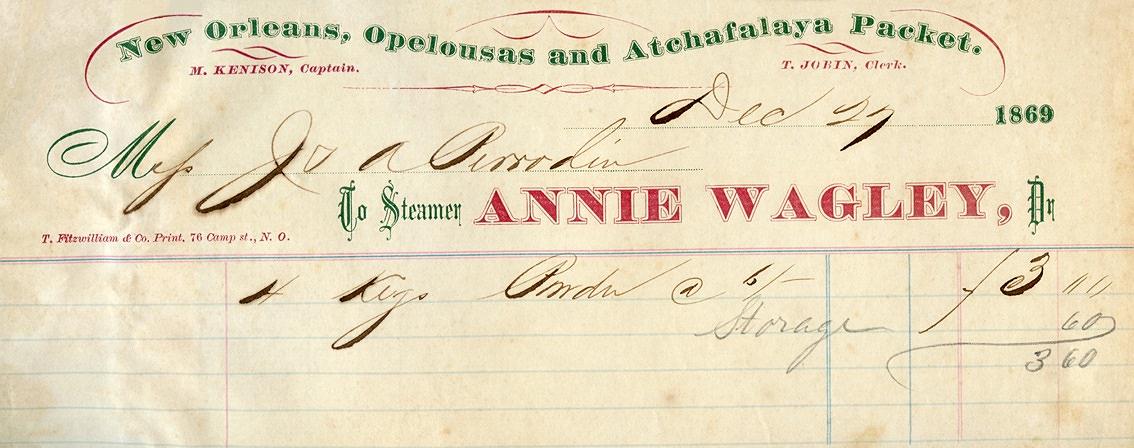 New Orleans, Opelousas and Atchafalaya Packet.
M. KENISON, Captain. T. JOBIN, Clerk.
Dec 27 1869
Mess Jos A Perrodin
To Steamer ANNIE WAGLEY, Dr
T. Fitzwilliam & Co. Print, 76 Camp st., N. O.
4 Kegs Powder @ 6/- 3 00
Storage 60
3 60